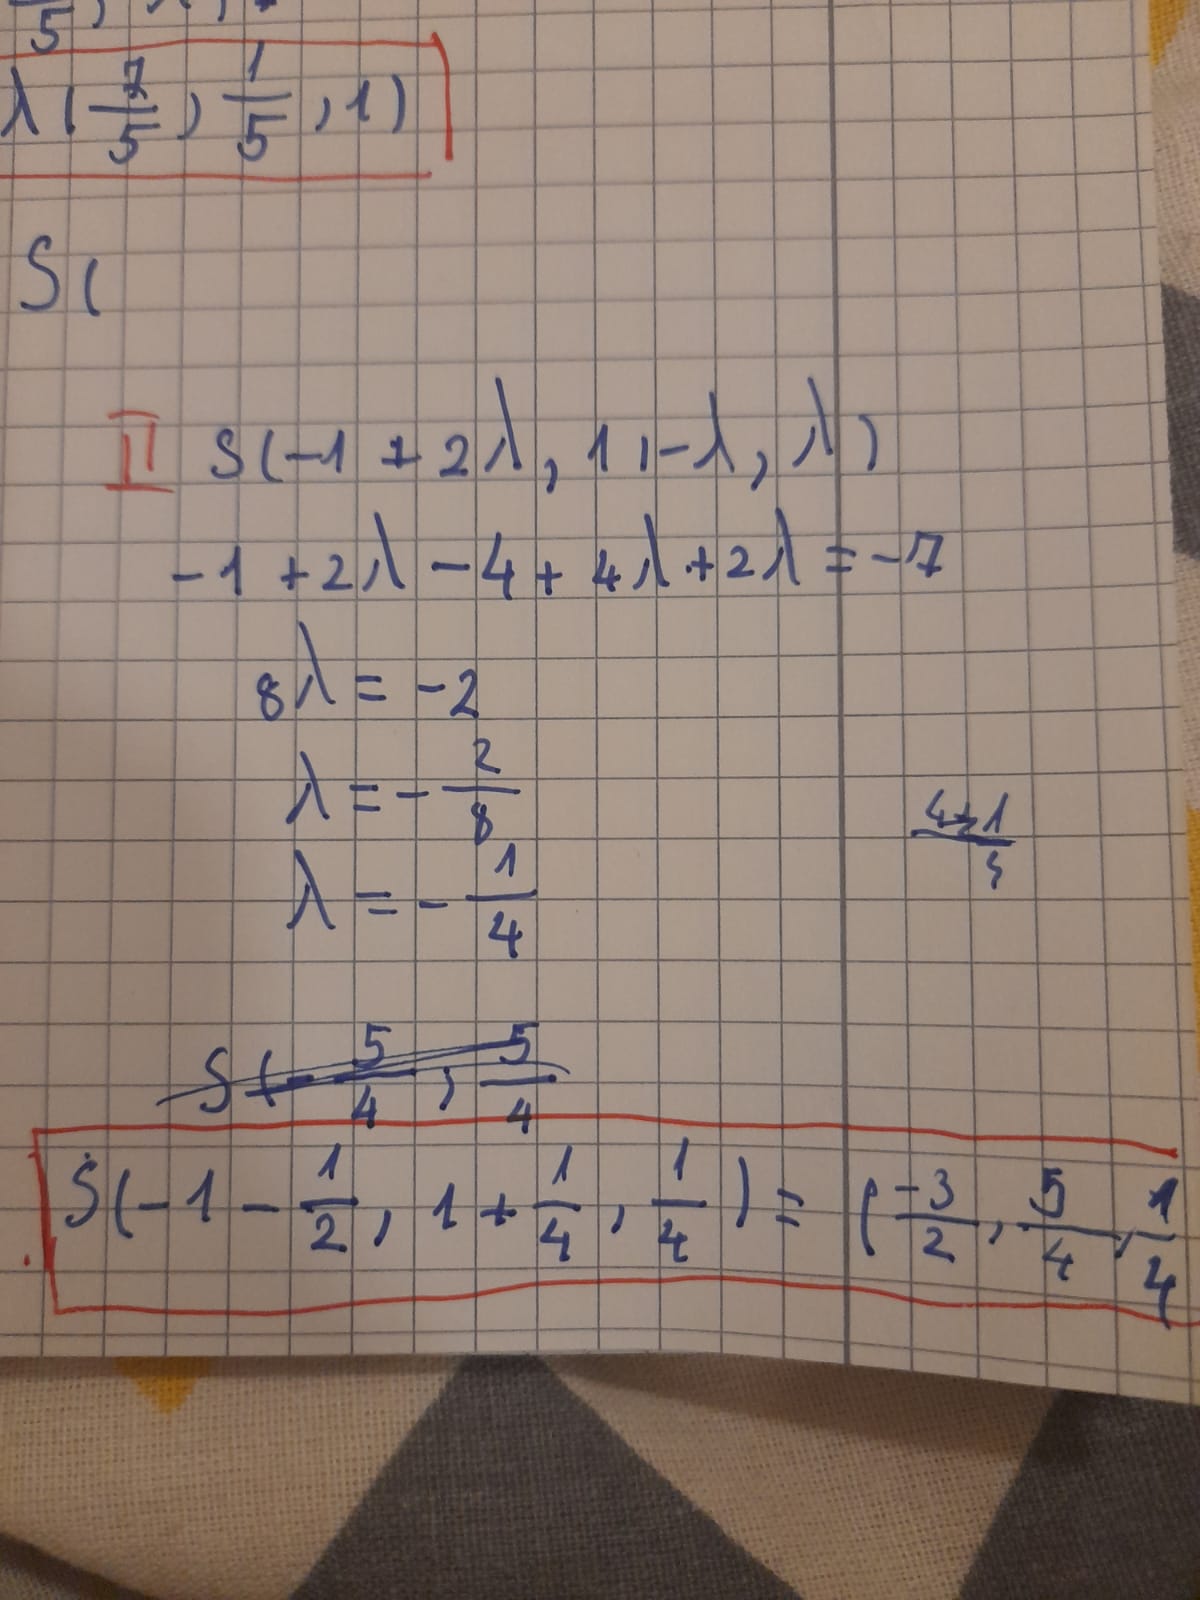 5
λ(7/5, 1/5, 1)
S(
II S(-1 + 2λ, 1, -λ, λ)
-1 + 2λ - 4 + 4λ + 2λ = -7
8λ = -2
λ = - 2/8
4+1
λ = - 1/4
S(- 5/4, 5/4
S(-1 - 1/2, 1 + 1/4, 1/4) = (-3/2, 5/4, 1/4